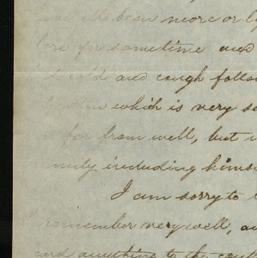 been more or l
for sometime and
cold and cough follow
which is very s
far from well, but i
including hims
I am sorry to
remember very well, a
anything to the